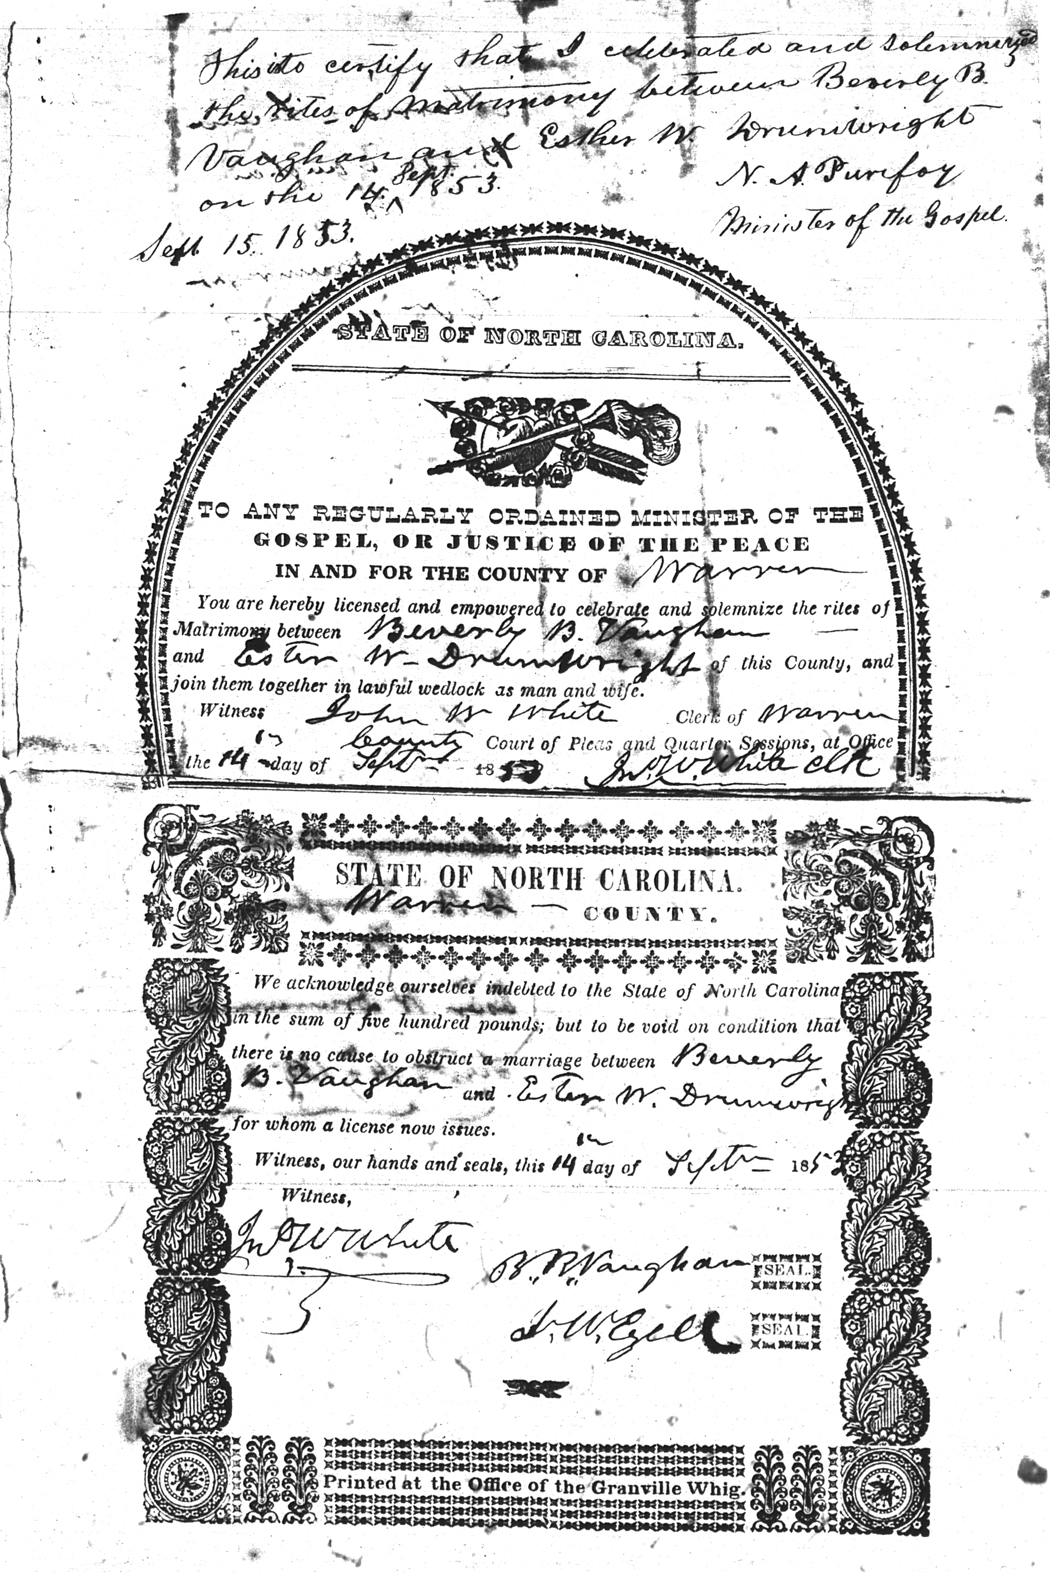 This is to certify that I celebrated and solemnized
the rites of Matrimony between Beverly B.
Vaughan and Esther W. Drumwright
on the 14 Sept. 1853.
N. A. Purefoy
Minister of the Gospel.
Sept. 15. 1853.
STATE OF NORTH CAROLINA.
TO ANY REGULARLY ORDAINED MINISTER OF THE
GOSPEL, OR JUSTICE OF THE PEACE
IN AND FOR THE COUNTY OF Warren
You are hereby licensed and empowered to celebrate and solemnize the rites of
Matrimony between Beverly B. Vaughan
and Ester W. Drumwright of this County, and
join them together in lawful wedlock as man and wife.
Witness John W White Clerk of Warren
County Court of Pleas and Quarter Sessions, at Office
the 14th day of Septr 1853 Jno. W. White Clk
STATE OF NORTH CAROLINA.
Warren COUNTY.
We acknowledge ourselves indebted to the State of North Carolina
in the sum of five hundred pounds; but to be void on condition that
there is no cause to obstruct a marriage between Beverly
B. Vaughan and Ester W. Drumwright
for whom a license now issues.
Witness, our hands and seals, this 14th day of Septr 1853
Witness,
Jno W White
B. B. Vaughan SEAL.
J. W. Ezell SEAL.
Printed at the Office of the Granville Whig.